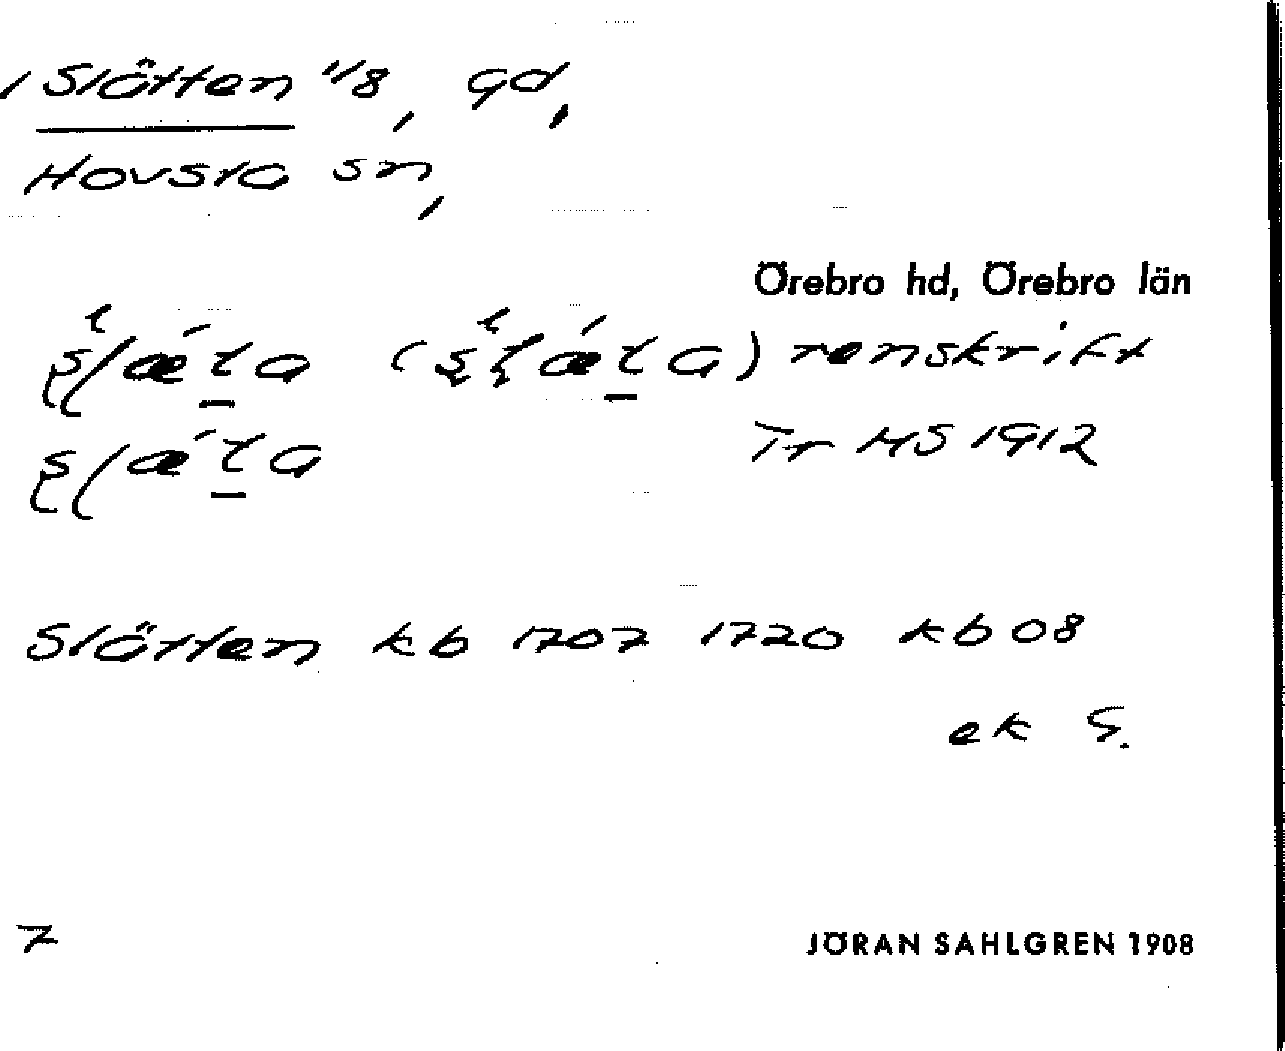 Slätten 1/8, gd,
Hovsta sn,
Örebro hd, Örebro län
renskrift
Tr MS 1912
Slätten kb 1707 1720 kb 08
ek S.
7
JÖRAN SAHLGREN 1908